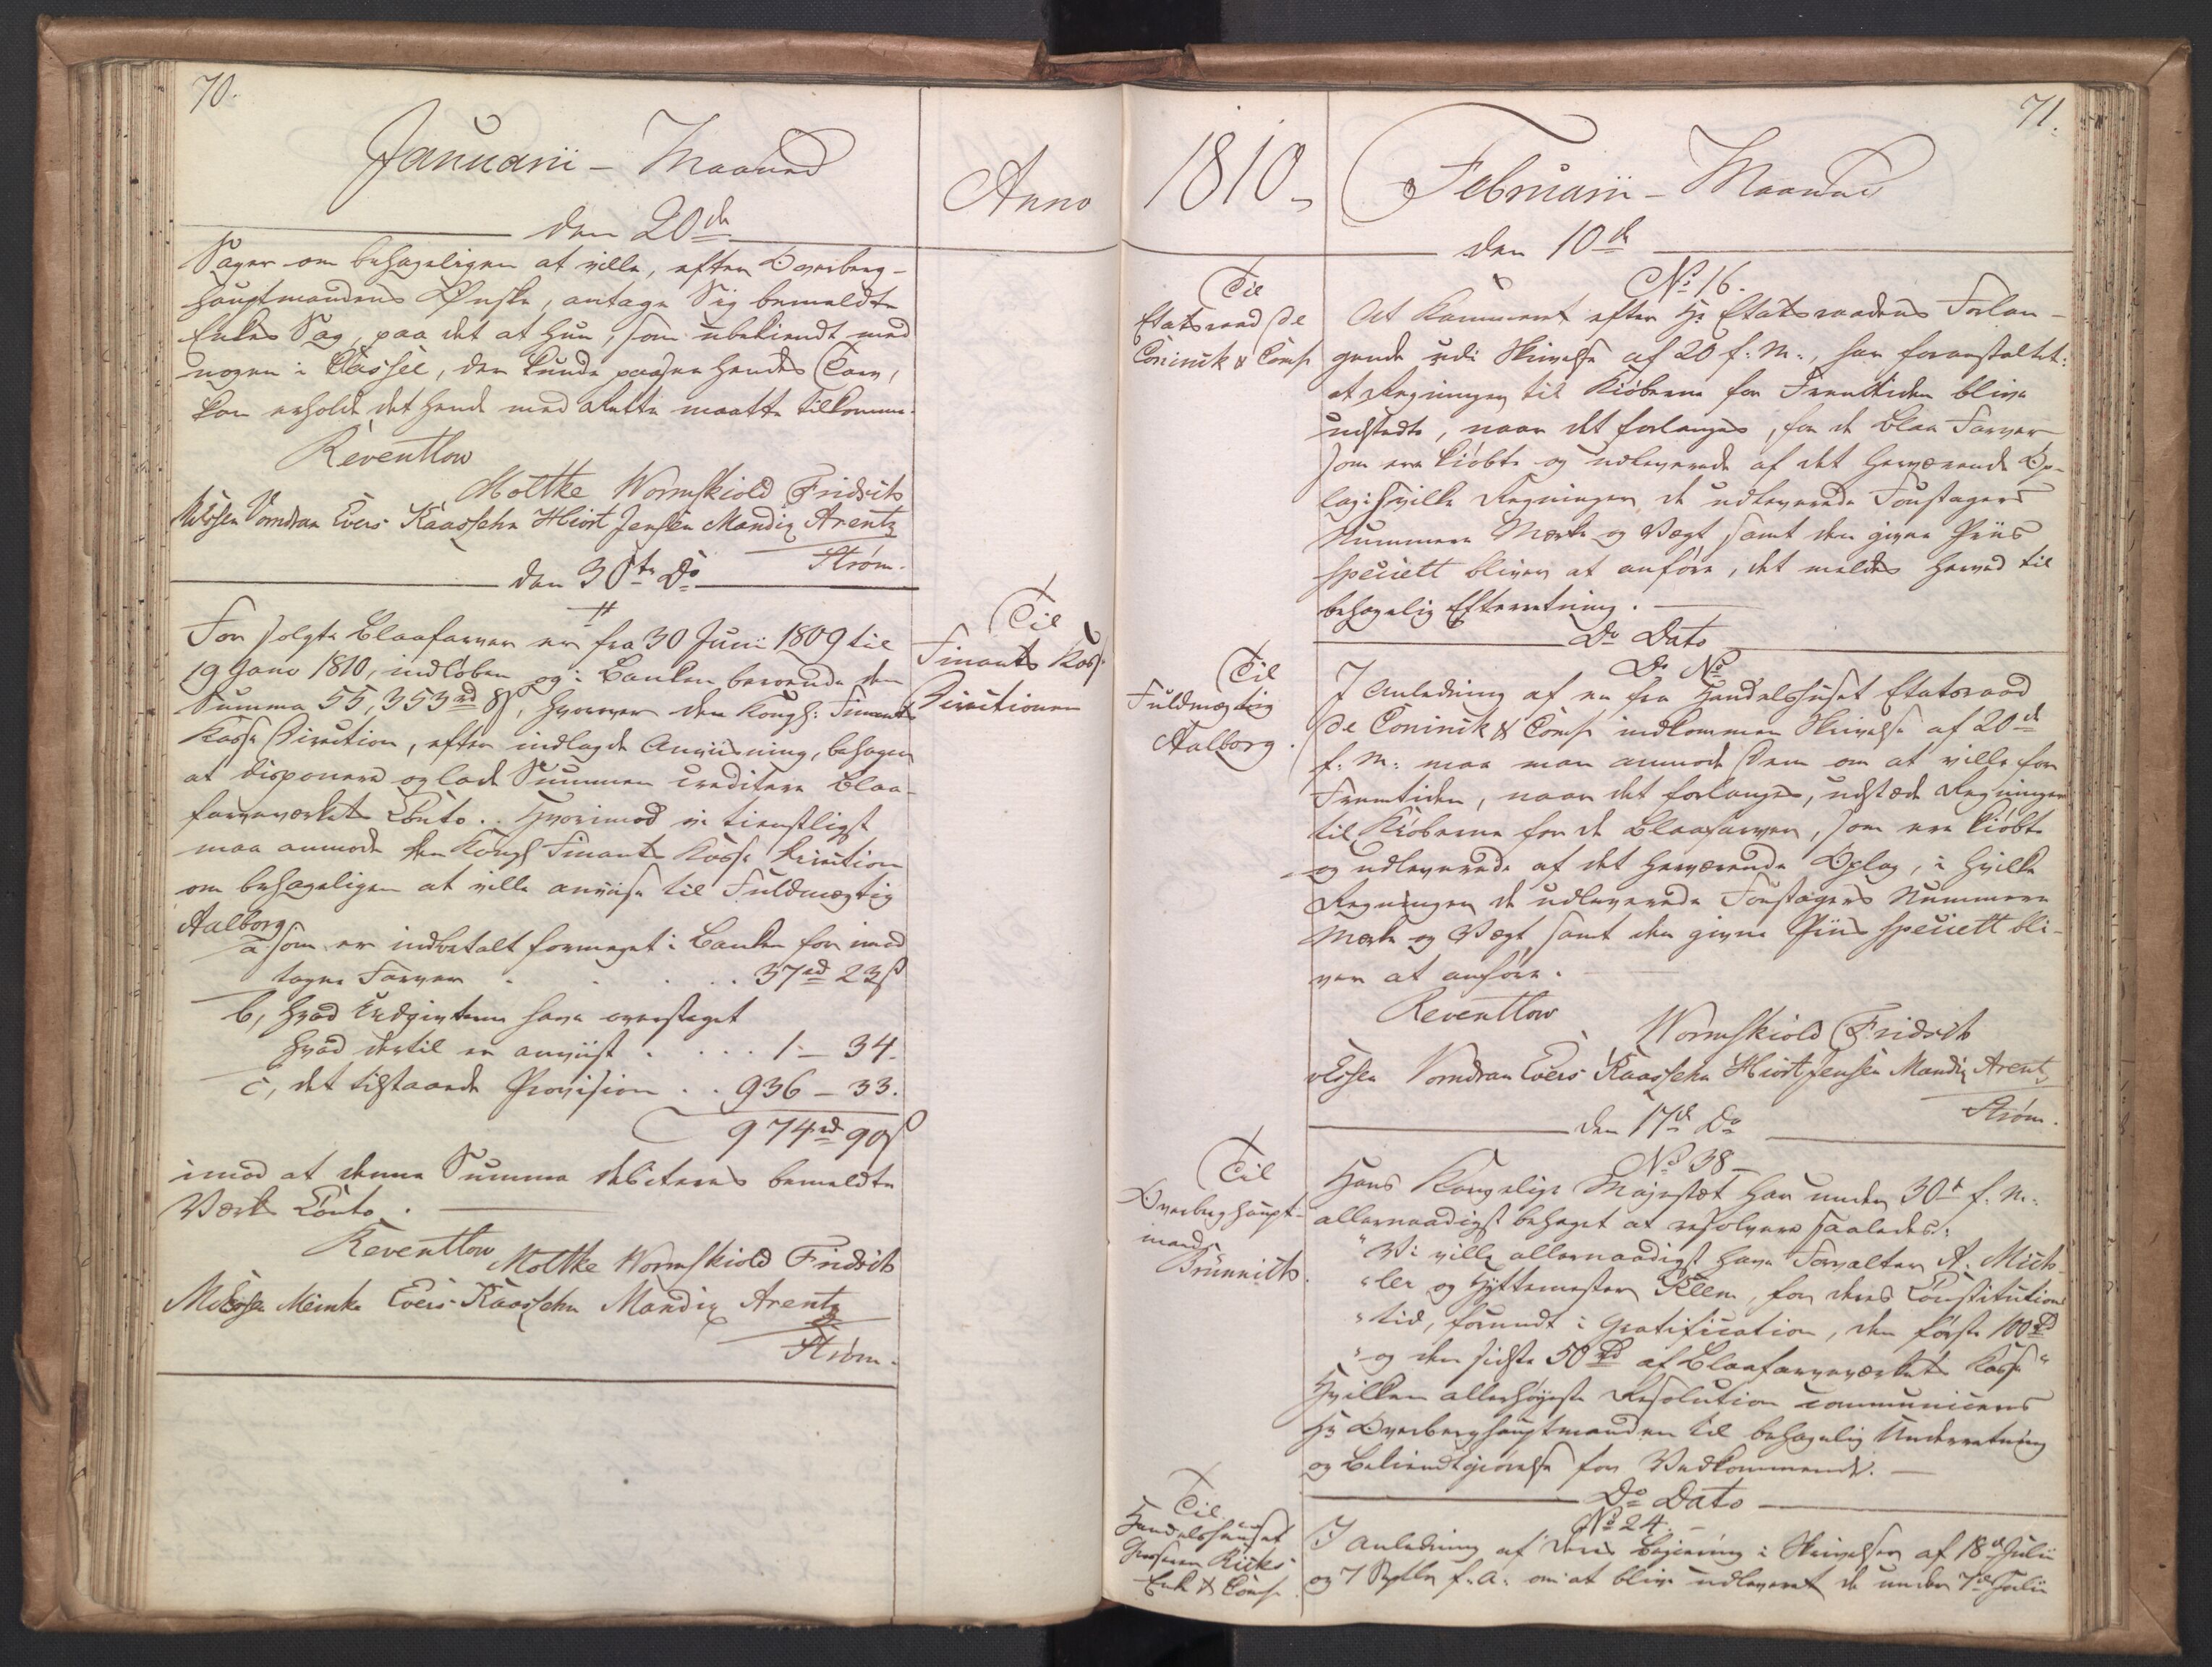 70.
Januarii - Maaned
Anno
den 20de
Sager om behageligen at ville, efter Overberg-
hauptmandens Ønske, antage Sig bemeldte
Enkes Sag, paa det at hun, som ubekiendt med
nogen i Cassel, der kunde paasee hendes Tarv,
kan erholde det hende med Rette maatte tilkomme.
Reventlow
Moltke Wormskiold Fridrich
Vorndran Evers Kaasbøhn Hiort Jensen Mandix Arentz
Strøm.
den 30te Do
For solgte Blaafarver er fra 30 Junii 1809 til
19 Janv 1810, indløben og i Banken beroende den
Summa 55,353 rd 8 s, hvorover den Kongl: Finants
Kasse Direction, efter indlagde Anviisning, behager
at disponere og lade Summen creditere Blaa-
farveværkets Conto. Hvorimod vi tienstligst
maa anmode den Kongl Finants Kasse Direction
om behageligen at ville anviise til Fuldmægtig
Aalborg:
a som er indbetalt formeget i Banken for imod
tagne Farver . . . . 37 rd 23 s
b, hvad Udgivterne have oversteget
hvad dertil er anviist . . . . 1 - 34.
c, det tilstaaede Provision . . 936 - 33.
974 rd 90 s
imod at denne Summa debiteres bemeldte
Værks Conto.
Reventlow Moltke Wormskiold Fridrich
Meinke Evers Kaasbøhn Mandix Arentz
Strøm.
Til
Finants Kasse
Directionen
71.
1810
Februarii - Maaned
den 10de
Til
Etatsraad de
Coninck & Comp
No 16.
At Kammeret efter Hr Etatsraadens Forlan-
gende udi Skrivelse af 20 f: M:, har foranstaltet:
at Regninger til Kiøberne for Fremtiden blive
udstedte, naar det forlanges, for de blaa Farver
som ere kiøbte og udleverede af det herværende Op-
lag i hvilke Regninger de udleverede Foustagers
Nummere Mærke og Vægt samt den givne Priis
specielt bliver at anføre, det meldes herved til
behagelig Efterretning.
Do Dato
Do No
Til
Fuldmægtig
Aalborg.
I Anledning af en fra Handelshuset Etatsraad
de Coninck & Comp indkommen Skrivelse af 20de
f: M: maa man anmode Dem om at ville for
Fremtiden, naar det forlanges, udstæde Regninger
til Kiøberne for de Blaafarver, som ere kiøbte
og udleverede af det herværende Oplag, i hvilke
Regninger de udleverede Foustagers Nummere
Mærke og Vægt samt den givne Priis specielt bli-
ver at anføre.
Reventlow
Wormskiold Fridrich
Vorndran Evers Kaasbøhn Hiort Jensen Mandix Arentz
Strøm.
den 17de Do
No 38
Til
Overberghaupt-
mand
Brünnich.
Hans Kongelige Majestæt har under 30te f. M.
allernaadigst behaget at resolvere saaledes:
"Vi ville allernaadigst have Forvalter A. Mich-
"ler og Hyttemester Klem, for deres Constitutions
"tid, forundt i Gratification, den første 100 Rd
"og den sidste 50 Rd af Blaafarveværkets Kasse"
Hvilken allerhøyeste Resolution communiceres
Hr Overberghauptmanden til behagelig Underretning
og Bekiendtgiørelse for Vedkommende.
Do Dato
No 24.
Til
Handelshuuset
Grosserer
Enke & Comp
I Anledning af Deres Begiering i Skrivelser af 18de Julii
og 7 Septbr f. A. om at blive udleveret de under 7de Julii